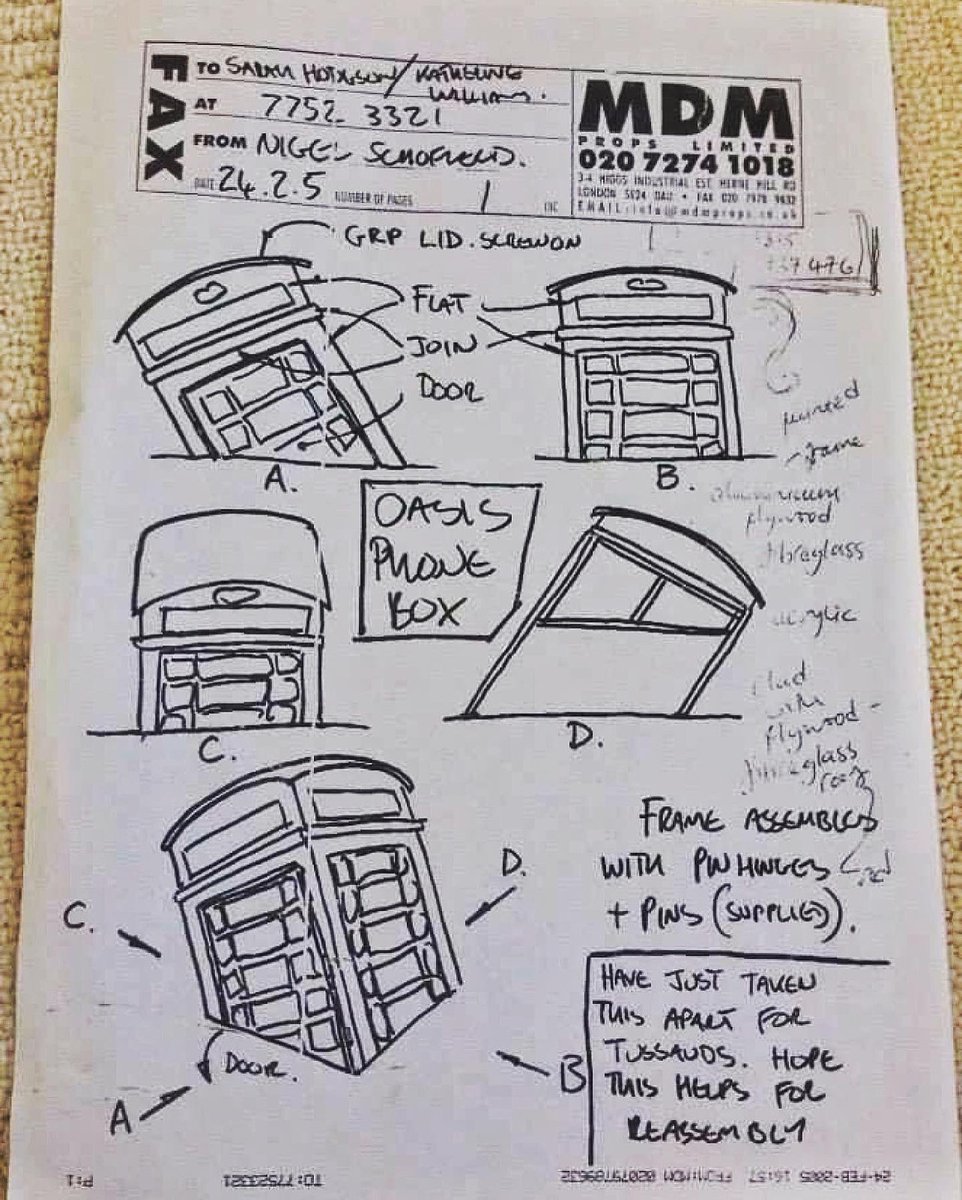 FAX
TO SARAH HODGSON/KATHERINE
WILLIAMS.
AT 7752-3321
FROM NIGEL SCHOFIELD.
DATE 24.2.5 NUMBER OF PAGES 1 INC
MDM
PROPS LIMITED
020 7274 1018
3-4 HIGGS INDUSTRIAL EST HERNE HILL RD
LONDON SE24 0AU • FAX 020 7978 9632
EMAIL:info@mdmprops.co.uk
GRP LID. SCREWON
476
FLAT
JOIN
DOOR
A.
B.
painted
frame
aluminium
plywood
fibreglass
acrylic
OASIS
PHONE
BOX
C.
D.
clad
with
plywood -
fibreglass
roof
FRAME ASSEMBLED
WITH PIN HINGES
+ PINS (SUPPLIED).
C.
D.
DOOR.
A
B
HAVE JUST TAKEN
THIS APART FOR
TUSSAUDS. HOPE
THIS HELPS FOR
REASSEMBLY
24-FEB-2005 16:57 FROM:MDM 02079789632 TO:77523321 P:1